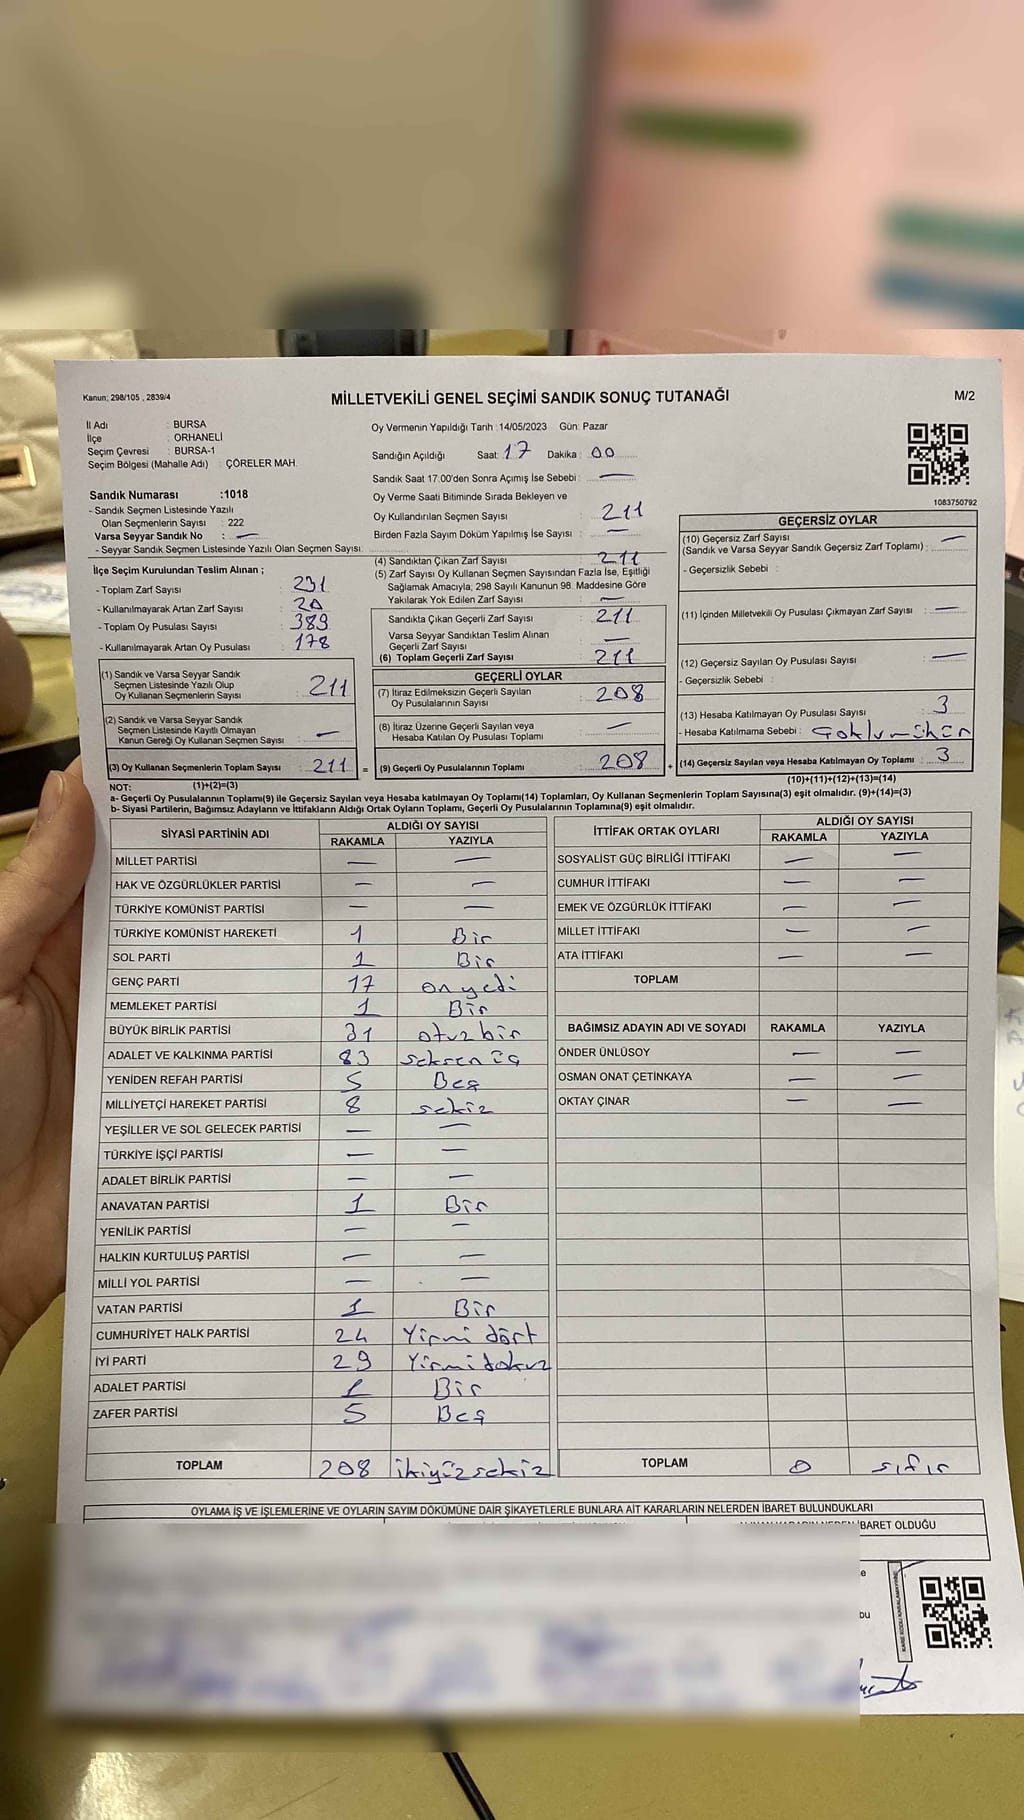 Kanun; 298/105 , 2839/4
MİLLETVEKİLİ GENEL SEÇİMİ SANDIK SONUÇ TUTANAĞI
M/2
İl Adı : BURSA
İlçe : ORHANELİ
Seçim Çevresi : BURSA-1
Seçim Bölgesi (Mahalle Adı) : ÇÖRELER MAH.
Sandık Numarası :1018
- Sandık Seçmen Listesinde Yazılı
Olan Seçmenlerin Sayısı : 222
Varsa Seyyar Sandık No : —
- Seyyar Sandık Seçmen Listesinde Yazılı Olan Seçmen Sayısı
Oy Vermenin Yapıldığı Tarih :14/05/2023 Gün: Pazar
Sandığın Açıldığı Saat: 17 Dakika : 00
Sandık Saat 17.00'den Sonra Açımış İse Sebebi : —
Oy Verme Saati Bitiminde Sırada Bekleyen ve
Oy Kullandırılan Seçmen Sayısı : 211
Birden Fazla Sayım Döküm Yapılmış İse Sayısı : —
1083750792
İlçe Seçim Kurulundan Teslim Alınan ;
- Toplam Zarf Sayısı : 231
- Kullanılmayarak Artan Zarf Sayısı : 20
- Toplam Oy Pusulası Sayısı : 389
- Kullanılmayarak Artan Oy Pusulası : 178
(1) Sandık ve Varsa Seyyar Sandık
Seçmen Listesinde Yazılı Olup
Oy Kullanan Seçmenlerin Sayısı : 211
(2) Sandık ve Varsa Seyyar Sandık
Seçmen Listesinde Kayıtlı Olmayan
Kanun Gereği Oy Kullanan Seçmen Sayısı : —
(3) Oy Kullanan Seçmenlerin Toplam Sayısı : 211 =
(4) Sandıktan Çıkan Zarf Sayısı : 211
(5) Zarf Sayısı Oy Kullanan Seçmen Sayısından Fazla İse, Eşitliği
Sağlamak Amacıyla; 298 Sayılı Kanunun 98. Maddesine Göre
Yakılarak Yok Edilen Zarf Sayısı : —
Sandıkta Çıkan Geçerli Zarf Sayısı : 211
Varsa Seyyar Sandıktan Teslim Alınan
Geçerli Zarf Sayısı : —
(6) Toplam Geçerli Zarf Sayısı : 211
GEÇERLİ OYLAR
(7) İtiraz Edilmeksizin Geçerli Sayılan
Oy Pusulalarının Sayısı : 208
(8) İtiraz Üzerine Geçerli Sayılan veya
Hesaba Katılan Oy Pusulası Toplamı : —
(9) Geçerli Oy Pusulalarının Toplamı : 208 +
GEÇERSİZ OYLAR
(10) Geçersiz Zarf Sayısı
(Sandık ve Varsa Seyyar Sandık Geçersiz Zarf Toplamı) : —
- Geçersizlik Sebebi :
(11) İçinden Milletvekili Oy Pusulası Çıkmayan Zarf Sayısı : —
(12) Geçersiz Sayılan Oy Pusulası Sayısı : —
- Geçersizlik Sebebi :
(13) Hesaba Katılmayan Oy Pusulası Sayısı : 3
- Hesaba Katılmama Sebebi : Çoklu mühür
(14) Geçersiz Sayılan veya Hesaba Katılmayan Oy Toplamı : 3
NOT: (1)+(2)=(3)
(10)+(11)+(12)+(13)=(14)
a- Geçerli Oy Pusulalarının Toplamı(9) ile Geçersiz Sayılan veya Hesaba katılmayan Oy Toplamı(14) Toplamları, Oy Kullanan Seçmenlerin Toplam Sayısına(3) eşit olmalıdır. (9)+(14)=(3)
b- Siyasi Partilerin, Bağımsız Adayların ve İttifakların Aldığı Ortak Oyların Toplamı, Geçerli Oy Pusulalarının Toplamına(9) eşit olmalıdır.
SİYASİ PARTİNİN ADI ALDIĞI OY SAYISI
RAKAMLA YAZIYLA
MİLLET PARTİSİ — —
HAK VE ÖZGÜRLÜKLER PARTİSİ — —
TÜRKİYE KOMÜNİST PARTİSİ — —
TÜRKİYE KOMÜNİST HAREKETİ 1 Bir
SOL PARTİ 1 Bir
GENÇ PARTİ 17 on yedi
MEMLEKET PARTİSİ 1 Bir
BÜYÜK BİRLİK PARTİSİ 31 otuz bir
ADALET VE KALKINMA PARTİSİ 83 seksen üç
YENİDEN REFAH PARTİSİ 5 Beş
MİLLİYETÇİ HAREKET PARTİSİ 8 sekiz
YEŞİLLER VE SOL GELECEK PARTİSİ — —
TÜRKİYE İŞÇİ PARTİSİ — —
ADALET BİRLİK PARTİSİ — —
ANAVATAN PARTİSİ 1 Bir
YENİLİK PARTİSİ — —
HALKIN KURTULUŞ PARTİSİ — —
MİLLİ YOL PARTİSİ — —
VATAN PARTİSİ 1 Bir
CUMHURİYET HALK PARTİSİ 24 Yirmi dört
İYİ PARTİ 29 Yirmi dokuz
ADALET PARTİSİ 1 Bir
ZAFER PARTİSİ 5 Beş
TOPLAM 208 ikiyüz sekiz
İTTİFAK ORTAK OYLARI ALDIĞI OY SAYISI
RAKAMLA YAZIYLA
SOSYALİST GÜÇ BİRLİĞİ İTTİFAKI — —
CUMHUR İTTİFAKI — —
EMEK VE ÖZGÜRLÜK İTTİFAKI — —
MİLLET İTTİFAKI — —
ATA İTTİFAKI — —
TOPLAM
BAĞIMSIZ ADAYIN ADI VE SOYADI RAKAMLA YAZIYLA
ÖNDER ÜNLÜSOY — —
OSMAN ONAT ÇETİNKAYA — —
OKTAY ÇINAR — —
TOPLAM 0 sıfır
OYLAMA İŞ VE İŞLEMLERİNE VE OYLARIN SAYIM DÖKÜMÜNE DAİR ŞİKAYETLERLE BUNLARA AİT KARARLARIN NELERDEN İBARET BULUNDUKLARI
İBARET OLDUĞU